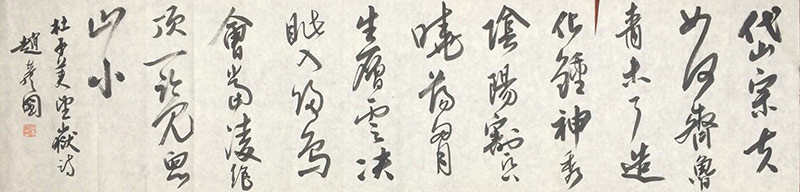 岱宗夫
如何齊魯
青未了造
化鍾神秀
陰陽割昏
曉蕩胸
生層雲決
眦入歸鳥
會當凌絕
頂一覽眾
山小
杜子美望嶽詩
趙彥國